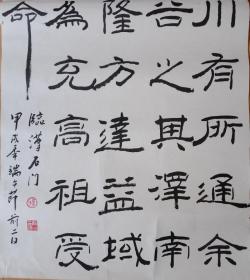 川有所通余
谷之其澤南
隆方達益域
為充高祖受
命
臨漢石门
甲戌年端午节前二日